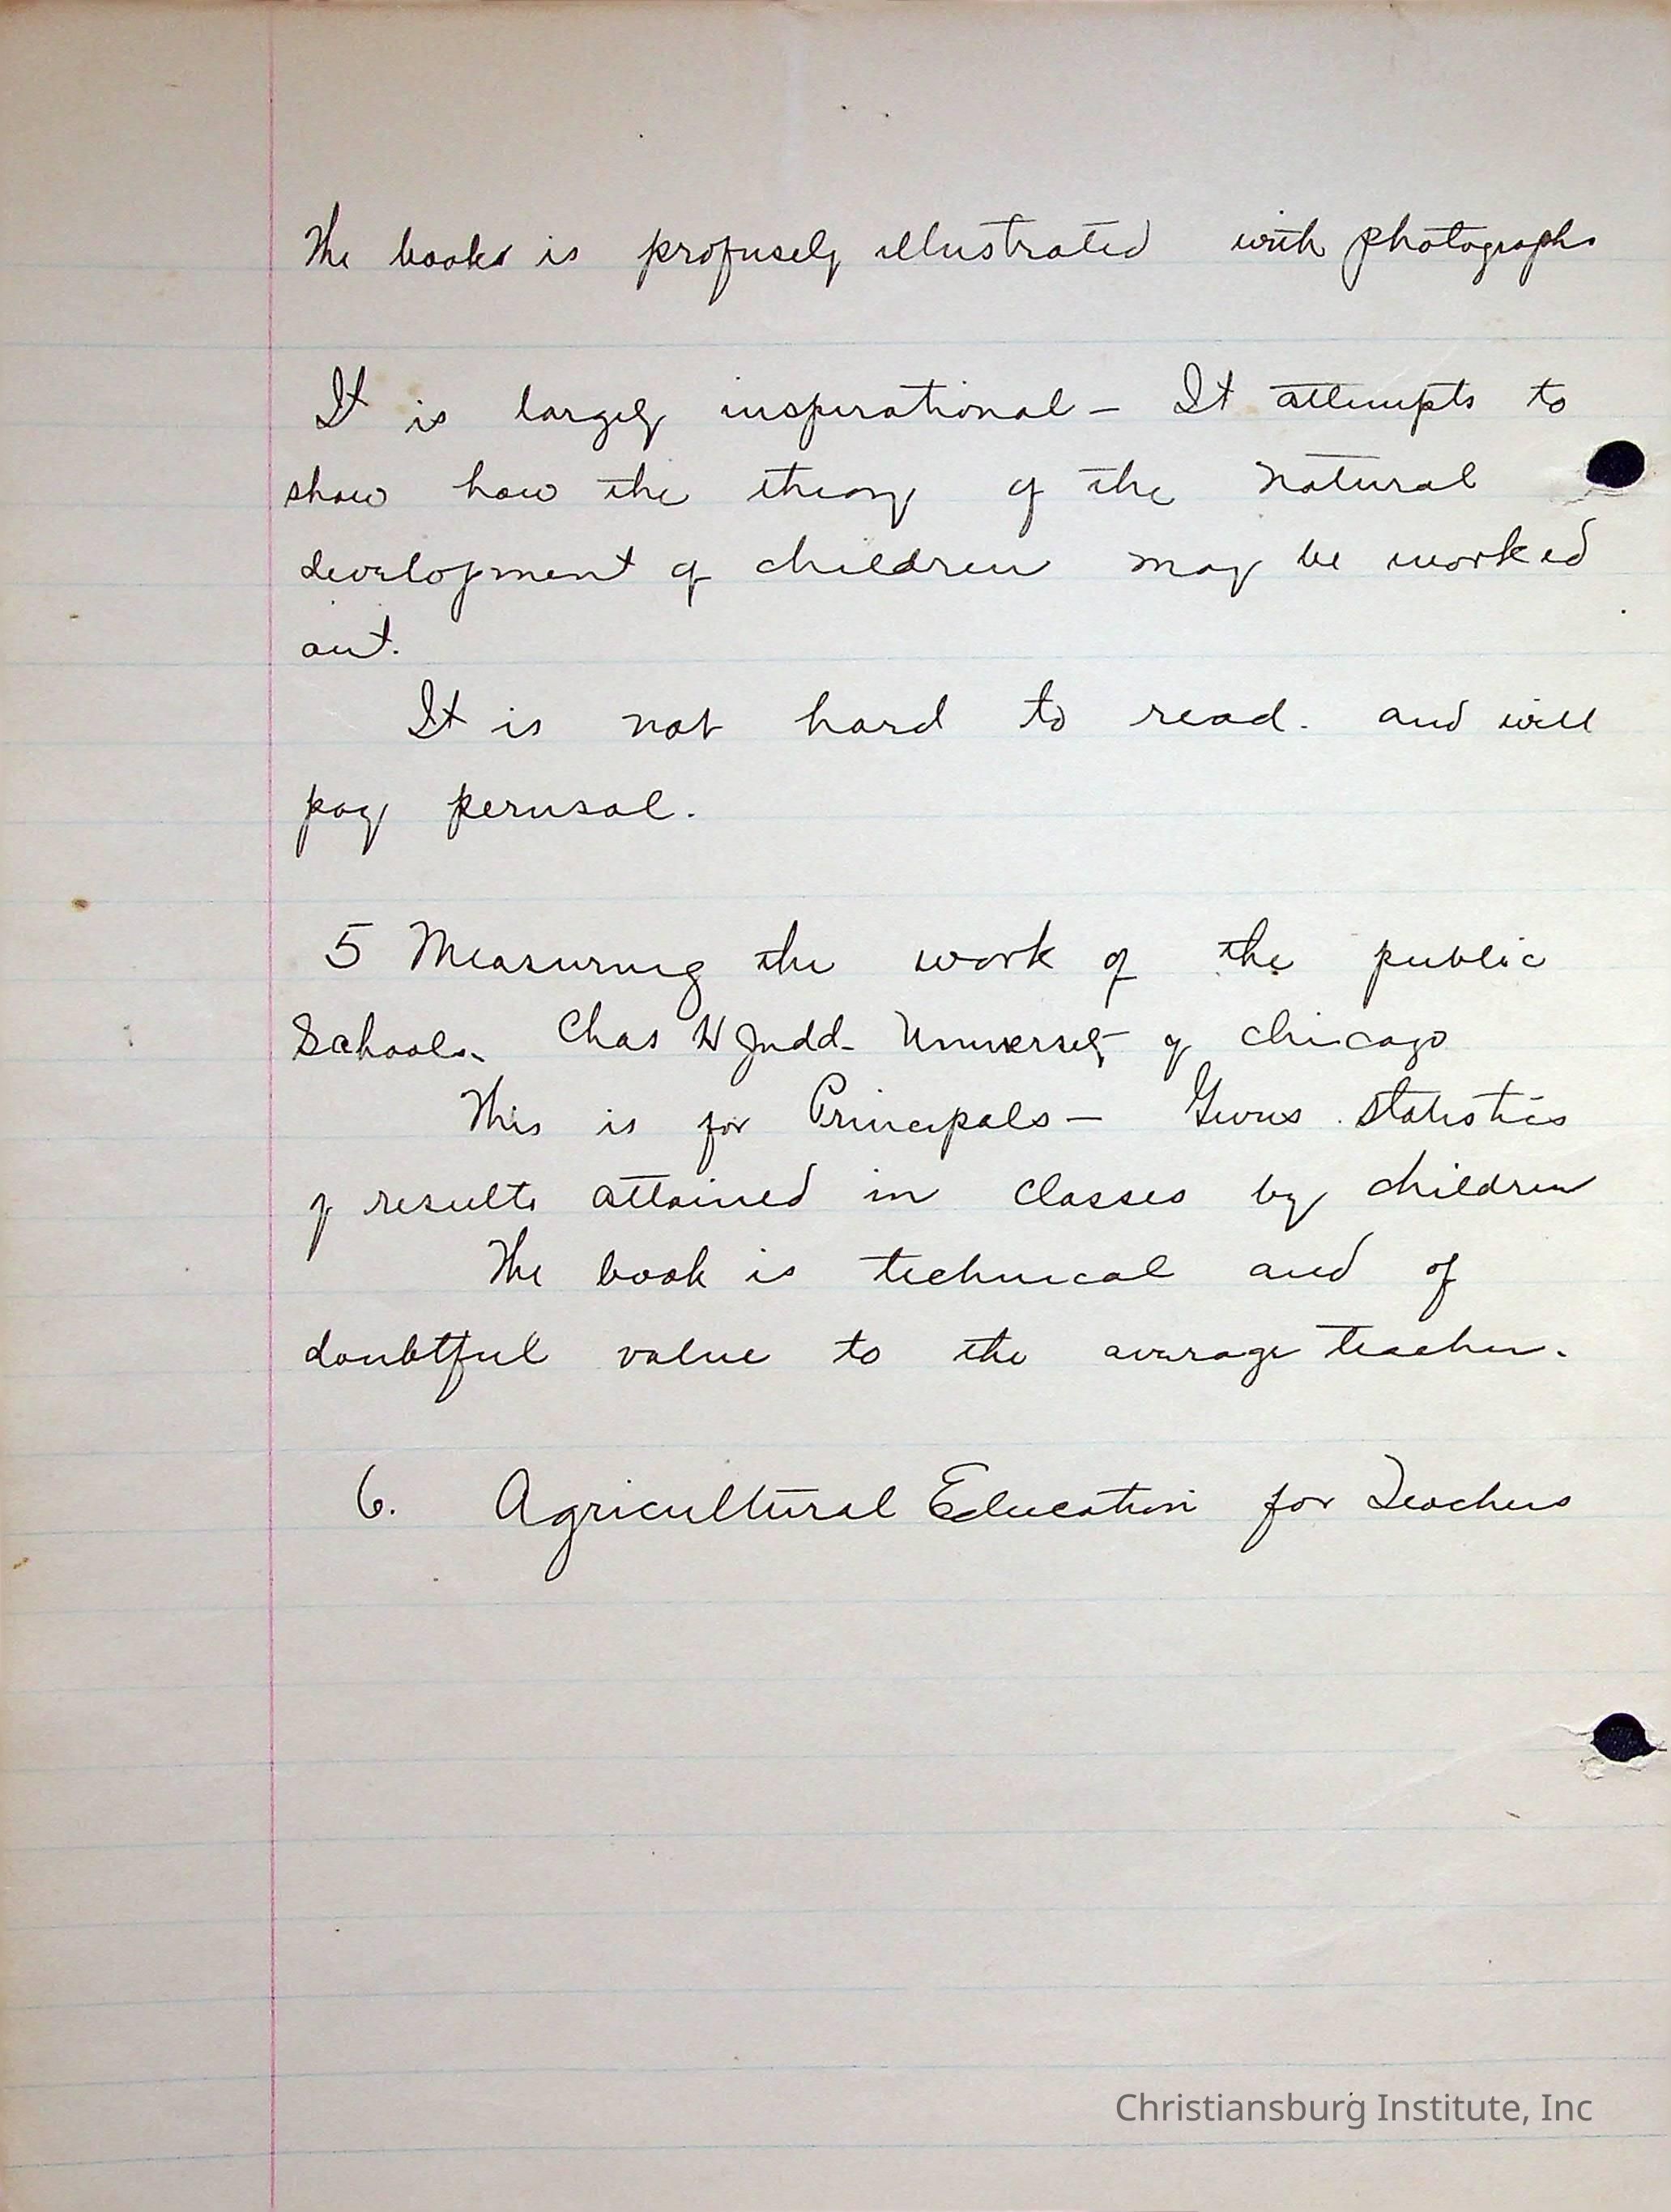 The books is profusely illustrated with photographs
It is largely inspirational – It attempts to
show how the theory of the natural
development of children may be worked
out.
It is not hard to read. and will
pay perusal.
5 Measuring the work of the public
Schools. Chas H Judd – University of Chicago
This is for Principals – Gives statistics
of results attained in classes by children
The book is technical and of
doubtful value to the average teacher.
6. Agricultural Education for Teachers
Christiansburg Institute, Inc